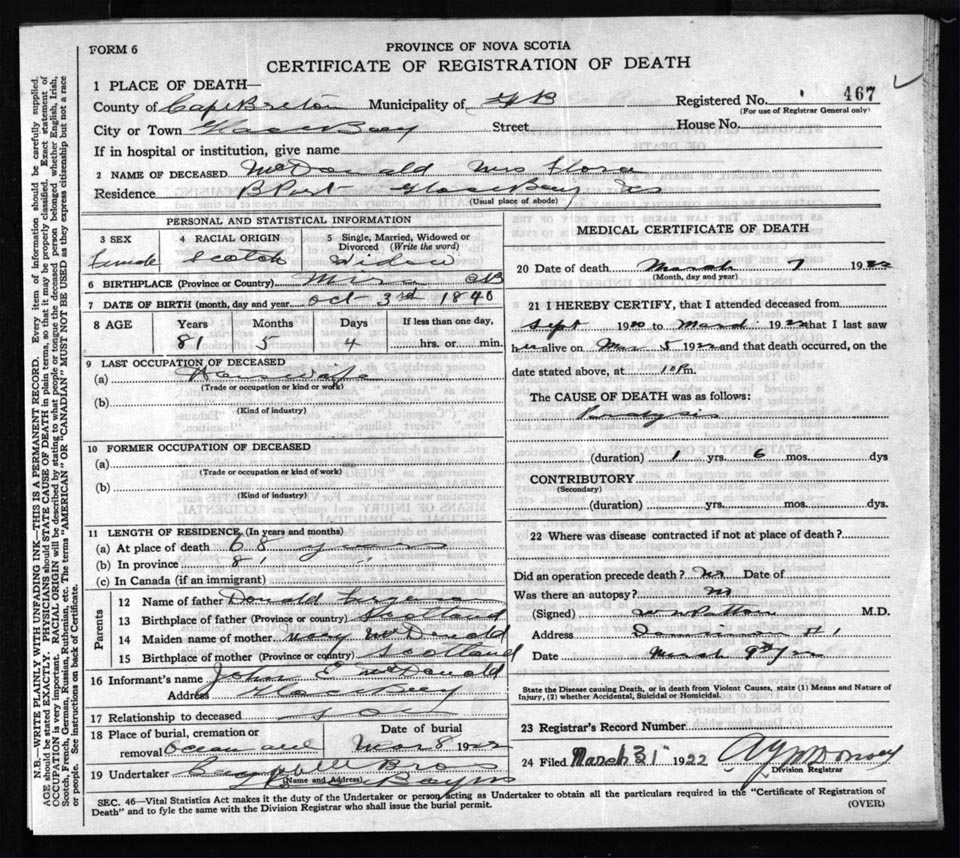 FORM 6
PROVINCE OF NOVA SCOTIA
CERTIFICATE OF REGISTRATION OF DEATH
1 PLACE OF DEATH—
County of Cape Breton Municipality of Registered No. 467
(For use of Registrar General only)
City or Town Glace Bay Street House No.
If in hospital or institution, give name
2 NAME OF DECEASED McDonald Mrs Flora
Residence Glace Bay
(Usual place of abode)
PERSONAL AND STATISTICAL INFORMATION
3 SEX 4 RACIAL ORIGIN 5 Single, Married, Widowed or Divorced (Write the word)
female Scotch Widow
6 BIRTHPLACE (Province or Country) Mira CB
7 DATE OF BIRTH (month, day and year) Oct 3rd 1840
8 AGE Years Months Days If less than one day,
81 5 4 hrs. or min.
9 LAST OCCUPATION OF DECEASED
(a) Housewife
(Trade or occupation or kind or work)
(b)
(Kind of industry)
10 FORMER OCCUPATION OF DECEASED
(a)
(Trade or occupation or kind of work)
(b)
(Kind of industry)
11 LENGTH OF RESIDENCE (In years and months)
(a) At place of death 68 years
(b) In province 81 "
(c) In Canada (if an immigrant)
Parents
12 Name of father Donald
13 Birthplace of father (Province or country) Scotland
14 Maiden name of mother Mary McDonald
15 Birthplace of mother (Province or country) Scotland
16 Informant's name John E McDonald
Address Glace Bay
17 Relationship to deceased son
18 Place of burial, cremation or removal Date of burial
Mar 8 1922
19 Undertaker Bros
(Name and Address)
MEDICAL CERTIFICATE OF DEATH
20 Date of death March 7 1922
(Month, day and year)
21 I HEREBY CERTIFY, that I attended deceased from
Sept 1920 to March 1922 that I last saw
her alive on Mar 5 1922 and that death occurred, on the
date stated above, at 10 Pm.
The CAUSE OF DEATH was as follows:
Paralysis
(duration) 1 yrs. 6 mos. dys
CONTRIBUTORY
(Secondary)
(duration) yrs. mos. dys.
22 Where was disease contracted if not at place of death?
Did an operation precede death? no Date of
Was there an autopsy?
(Signed) M.D.
Address Dominion # 1
Date March 9th/22
State the Disease causing Death, or in death from Violent Causes, state (1) Means and Nature of
Injury, (2) whether Accidental, Suicidal or Homicidal.
23 Registrar's Record Number
24 Filed March 31 1922
Division Registrar
SEC. 46—Vital Statistics Act makes it the duty of the Undertaker or person acting as Undertaker to obtain all the particulars required in the "Certificate of Registration of
Death" and to fyle the same with the Division Registrar who shall issue the burial permit. (OVER)
N.B.—WRITE PLAINLY WITH UNFADING INK—THIS IS A PERMANENT RECORD. Every item of information should be carefully supplied.
AGE should be stated EXACTLY. PHYSICIANS should STATE CAUSE OF DEATH in plain terms, so that it may be properly classified. Exact statement of
OCCUPATION is very important. RACIAL ORIGIN will be described by stating to what people or tongue the deceased person belonged whether English, Irish,
Scotch, French, German, Russian, Ruthenian, etc. The terms "AMERICAN" OR "CANADIAN" MUST NOT BE USED as they express citizenship but not a race
or people. See instructions on back of Certificate.